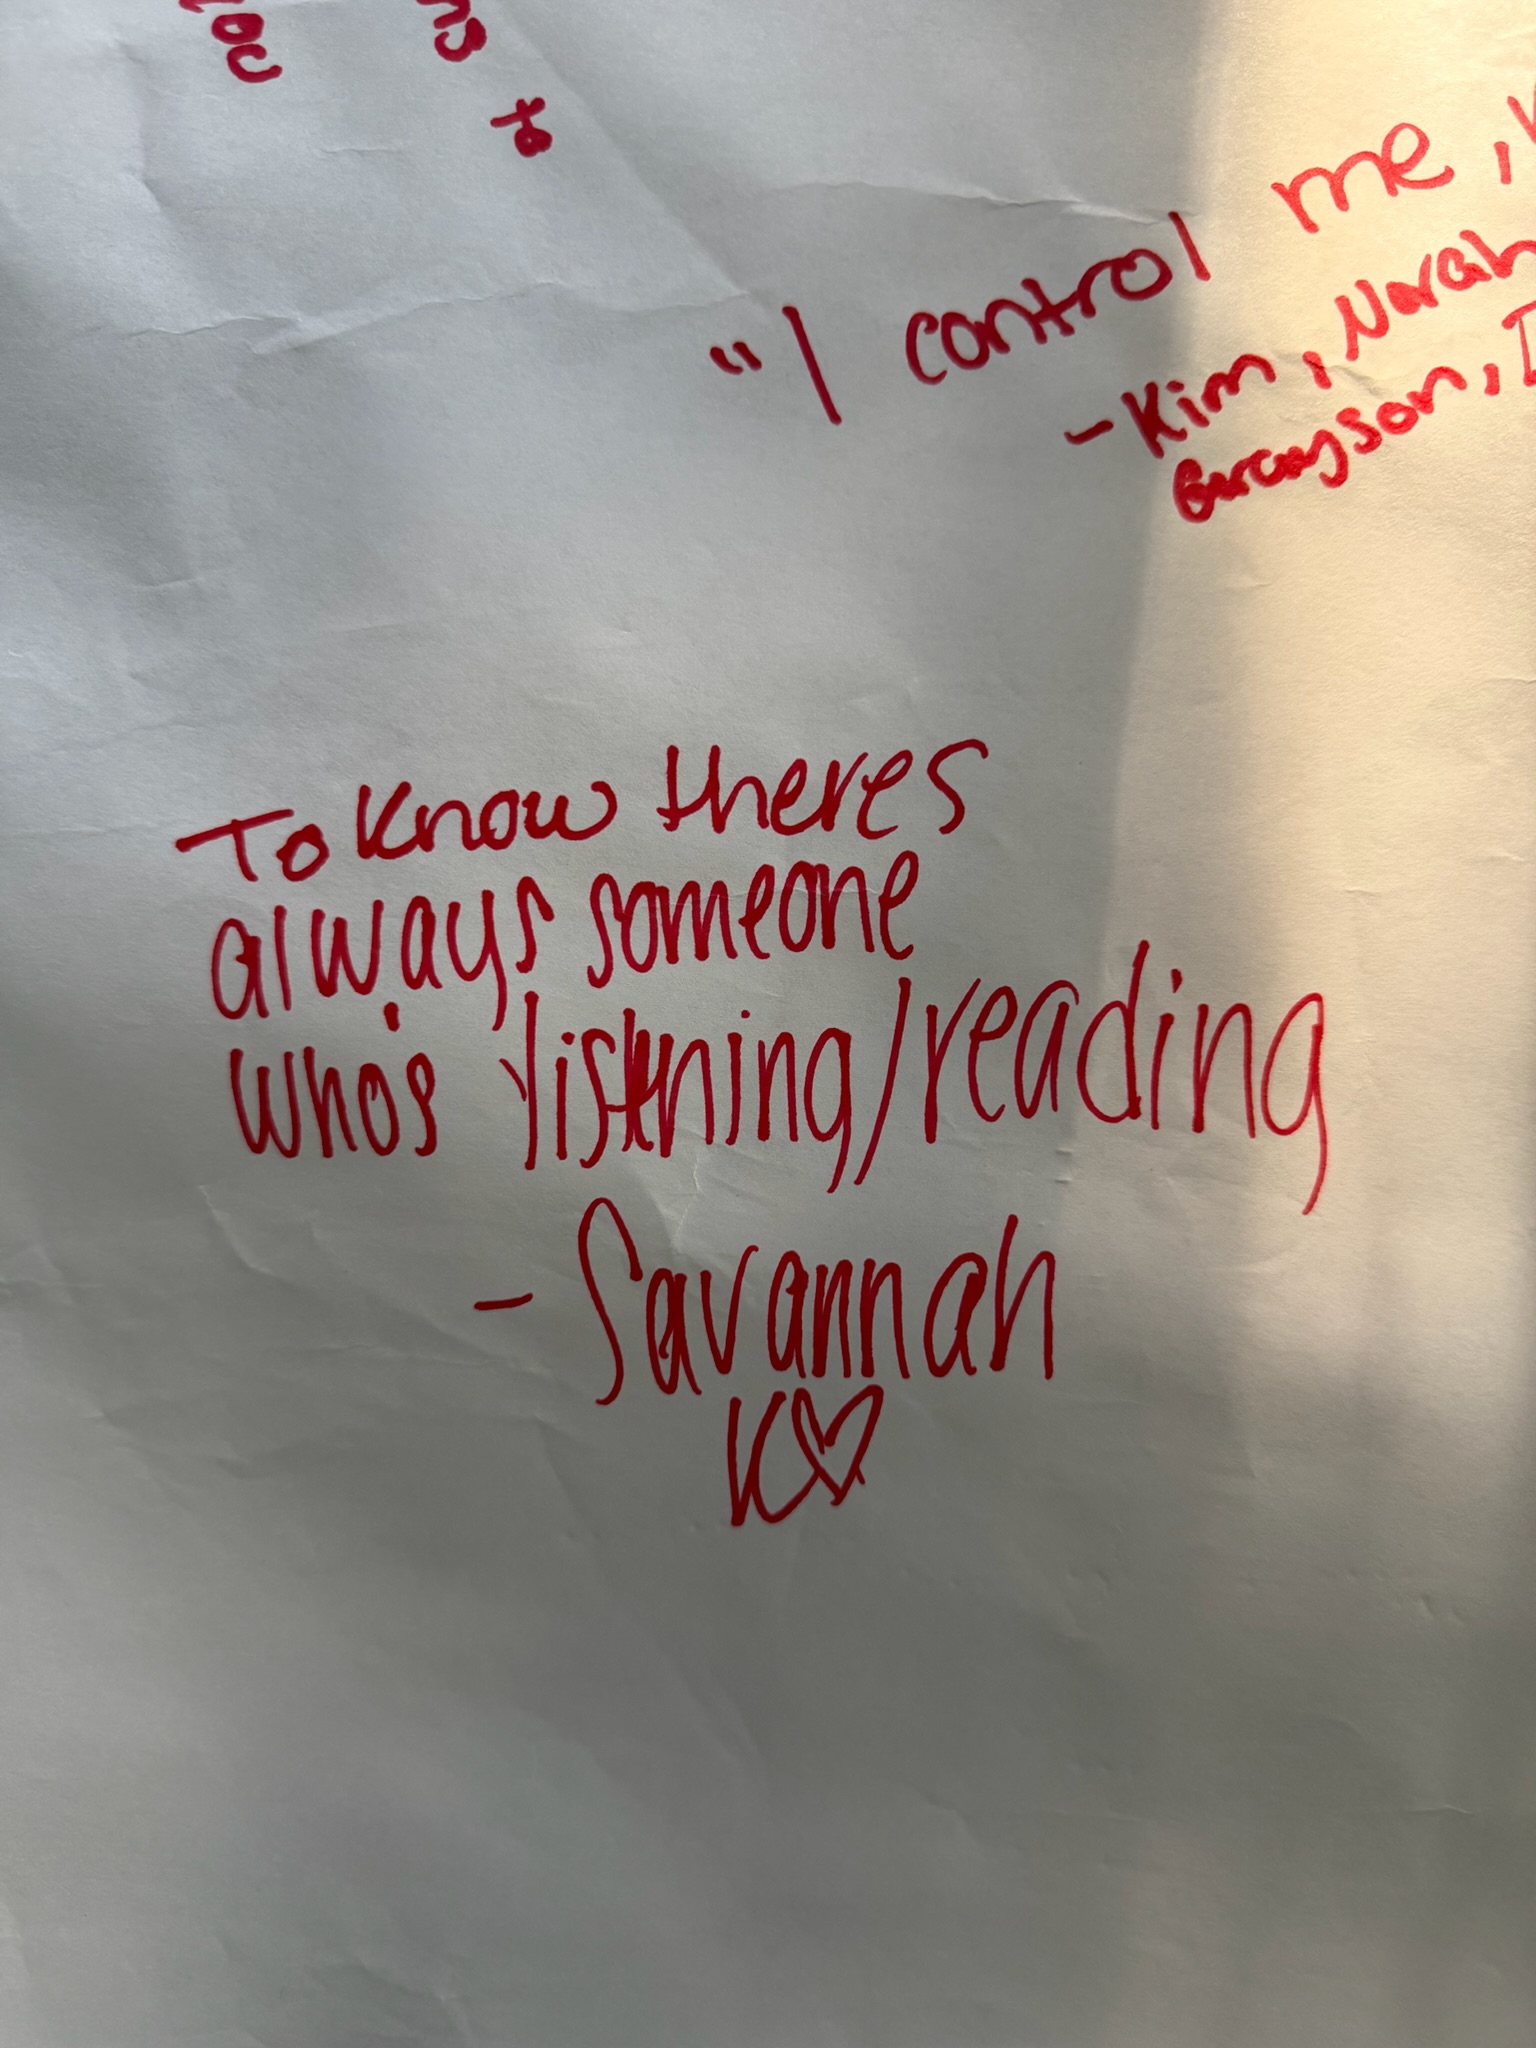 to
"I control me,
-Kim, Norah
Grayson, I
To Know theres
always someone
who's listening/reading
- Savannah
K♡